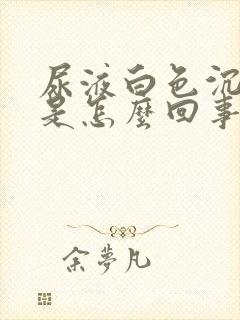 尿液白色沉
是怎麼回事
余夢凡